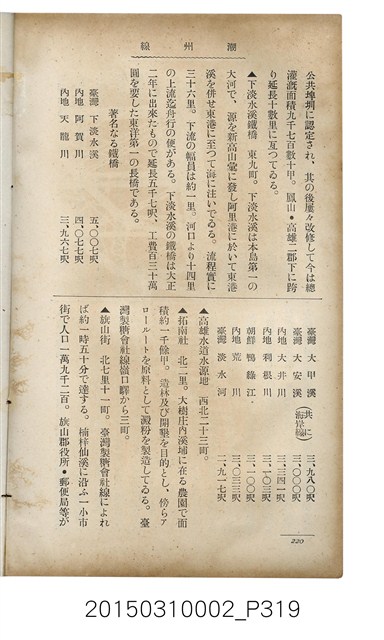 線州潮
公共埤圳に認定され、其の後屢々改修して今は總
灌漑面積九千七百數十甲。鳳山・高雄二郡下に跨
り延長十數里に亙つてゐる。
▲下淡水溪鐵橋 東九町。下淡水溪は本島第一の
大河で、源を新高山彙に發し阿里港に於いて東港
溪を併せ東港に至つて海に注いでゐる。流程實に
三十六里。下流の幅員は約一里。河口より十四里
の上流迄舟行の便がある。下淡水溪の鐵橋は大正
二年に出來たもので延長五千七呎、工費百三十萬
圓を要した東洋第一の長橋である。
著名なる鐵橋
臺灣 下淡水溪 五、〇〇七呎
内地 阿賀川 四、〇七七呎
内地 天龍川 三、九六七呎
臺灣 大甲溪 三、九八〇呎
臺灣 大安溪 (共に海岸線) 三、〇〇〇呎
内地 大井川 三、三四一呎
内地 利根川 三、一〇三呎
朝鮮 鴨綠江 三、一〇〇呎
内地 荒川 三、〇三三呎
臺灣 淡水河 二、九一七呎
▲高雄水道水源地 西北二十三町。
▲拓南社 北二里。大樹庄内溪埔に在る農園で面
積約一千餘甲。造林及び開墾を目的とし、傍らア
ロールートを原料として澱粉を製造してゐる。臺
灣製糖會社線嶺口驛から三町。
▲旗山街 北七里十一町。臺灣製糖會社線によれ
ば約一時五十分で達する。楠梓仙溪に沿ふ一小市
街で人口一萬九千二百。旗山郡役所・郵便局等が
220
20150310002_P319